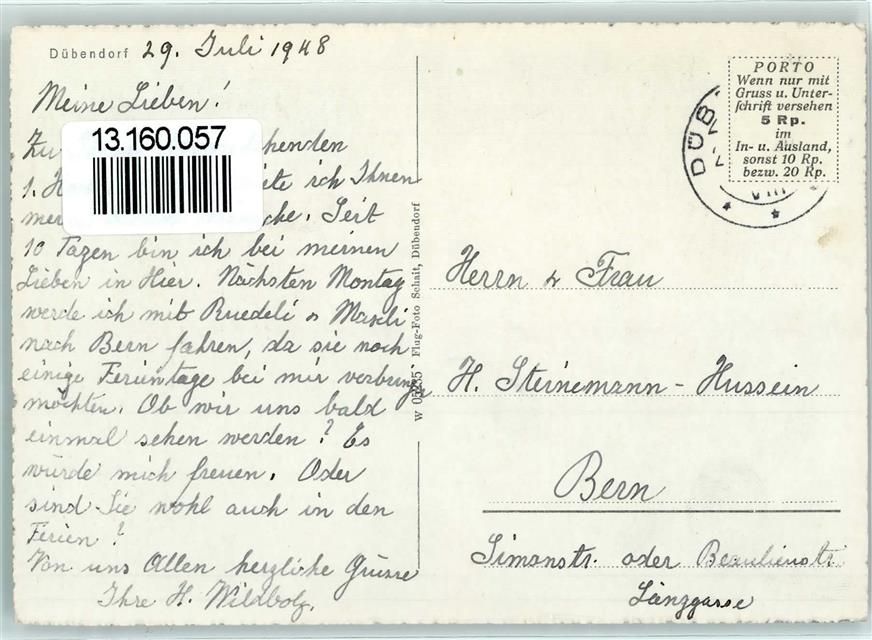 Dübendorf 29. Juli 1948
Meine Lieben!
Zu henden
1. ich Ihnen
che. Seit
10 Tagen bin ich bei meinen
Lieben in Hier. Nächsten Montag
werde ich mit Ruedeli & Maxli
nach Bern fahren, da sie noch
einige Ferientage bei mir verbringen
möchten. Ob wir uns bald
einmal sehen werden? Es
würde mich freuen. Oder
sind Sie wohl auch in den
Ferien?
Von uns Allen herzliche Grüsse
Ihre H. Wildbolz.
13.160.057
W 05235 Flug-Foto Schait, Dübendorf
DÜB
VIII
PORTO
Wenn nur mit
Gruss u. Unter-
schrift versehen
5 Rp.
im
In- u. Ausland,
sonst 10 Rp.
bezw. 20 Rp.
Herrn & Frau
H. Steinemann-Hussein
Bern
Simonstr. oder Beaulieustr.
Länggasse